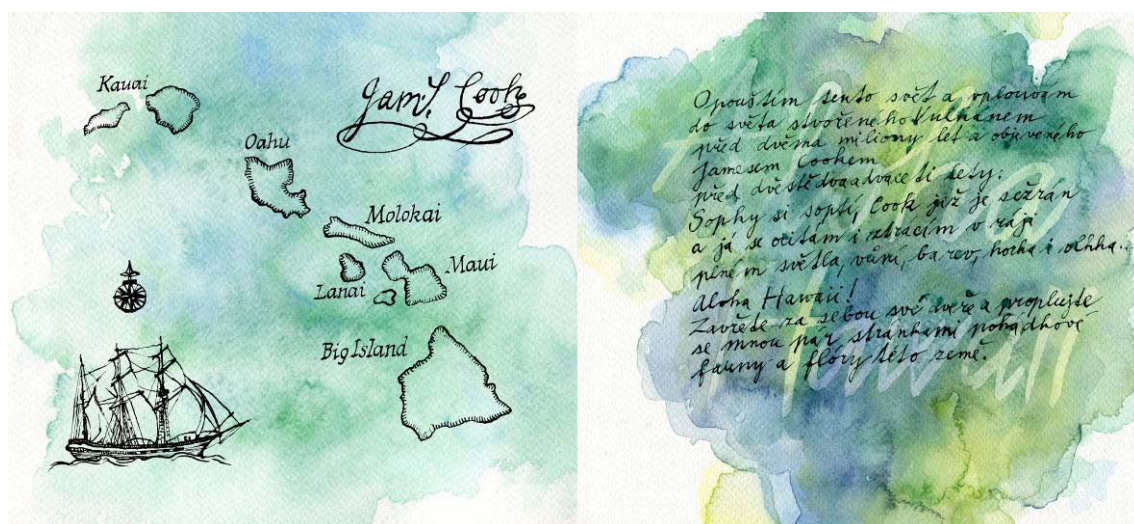 Kauai
Oahu
Jam.s Cook
Molokai
Maui
Lanai
Big Island
Opouštím tento svět a vplouvám
do světa stvořeného vulkánem
před dvěma miliony let a objeveného
Jamesem Cookem
před dvěstědvaadvaceti lety.
Sophy si soptí, Cook již je sežrán
a já se ocitám i ztrácím v ráji
plném světla, vůní, barev, horka i vlhka..
Aloha Hawaii!
Zavřete za sebou své dveře a proplujte
se mnou pár stránkami pohádkové
fauny a flóry této země.
Aloha
Hawaii